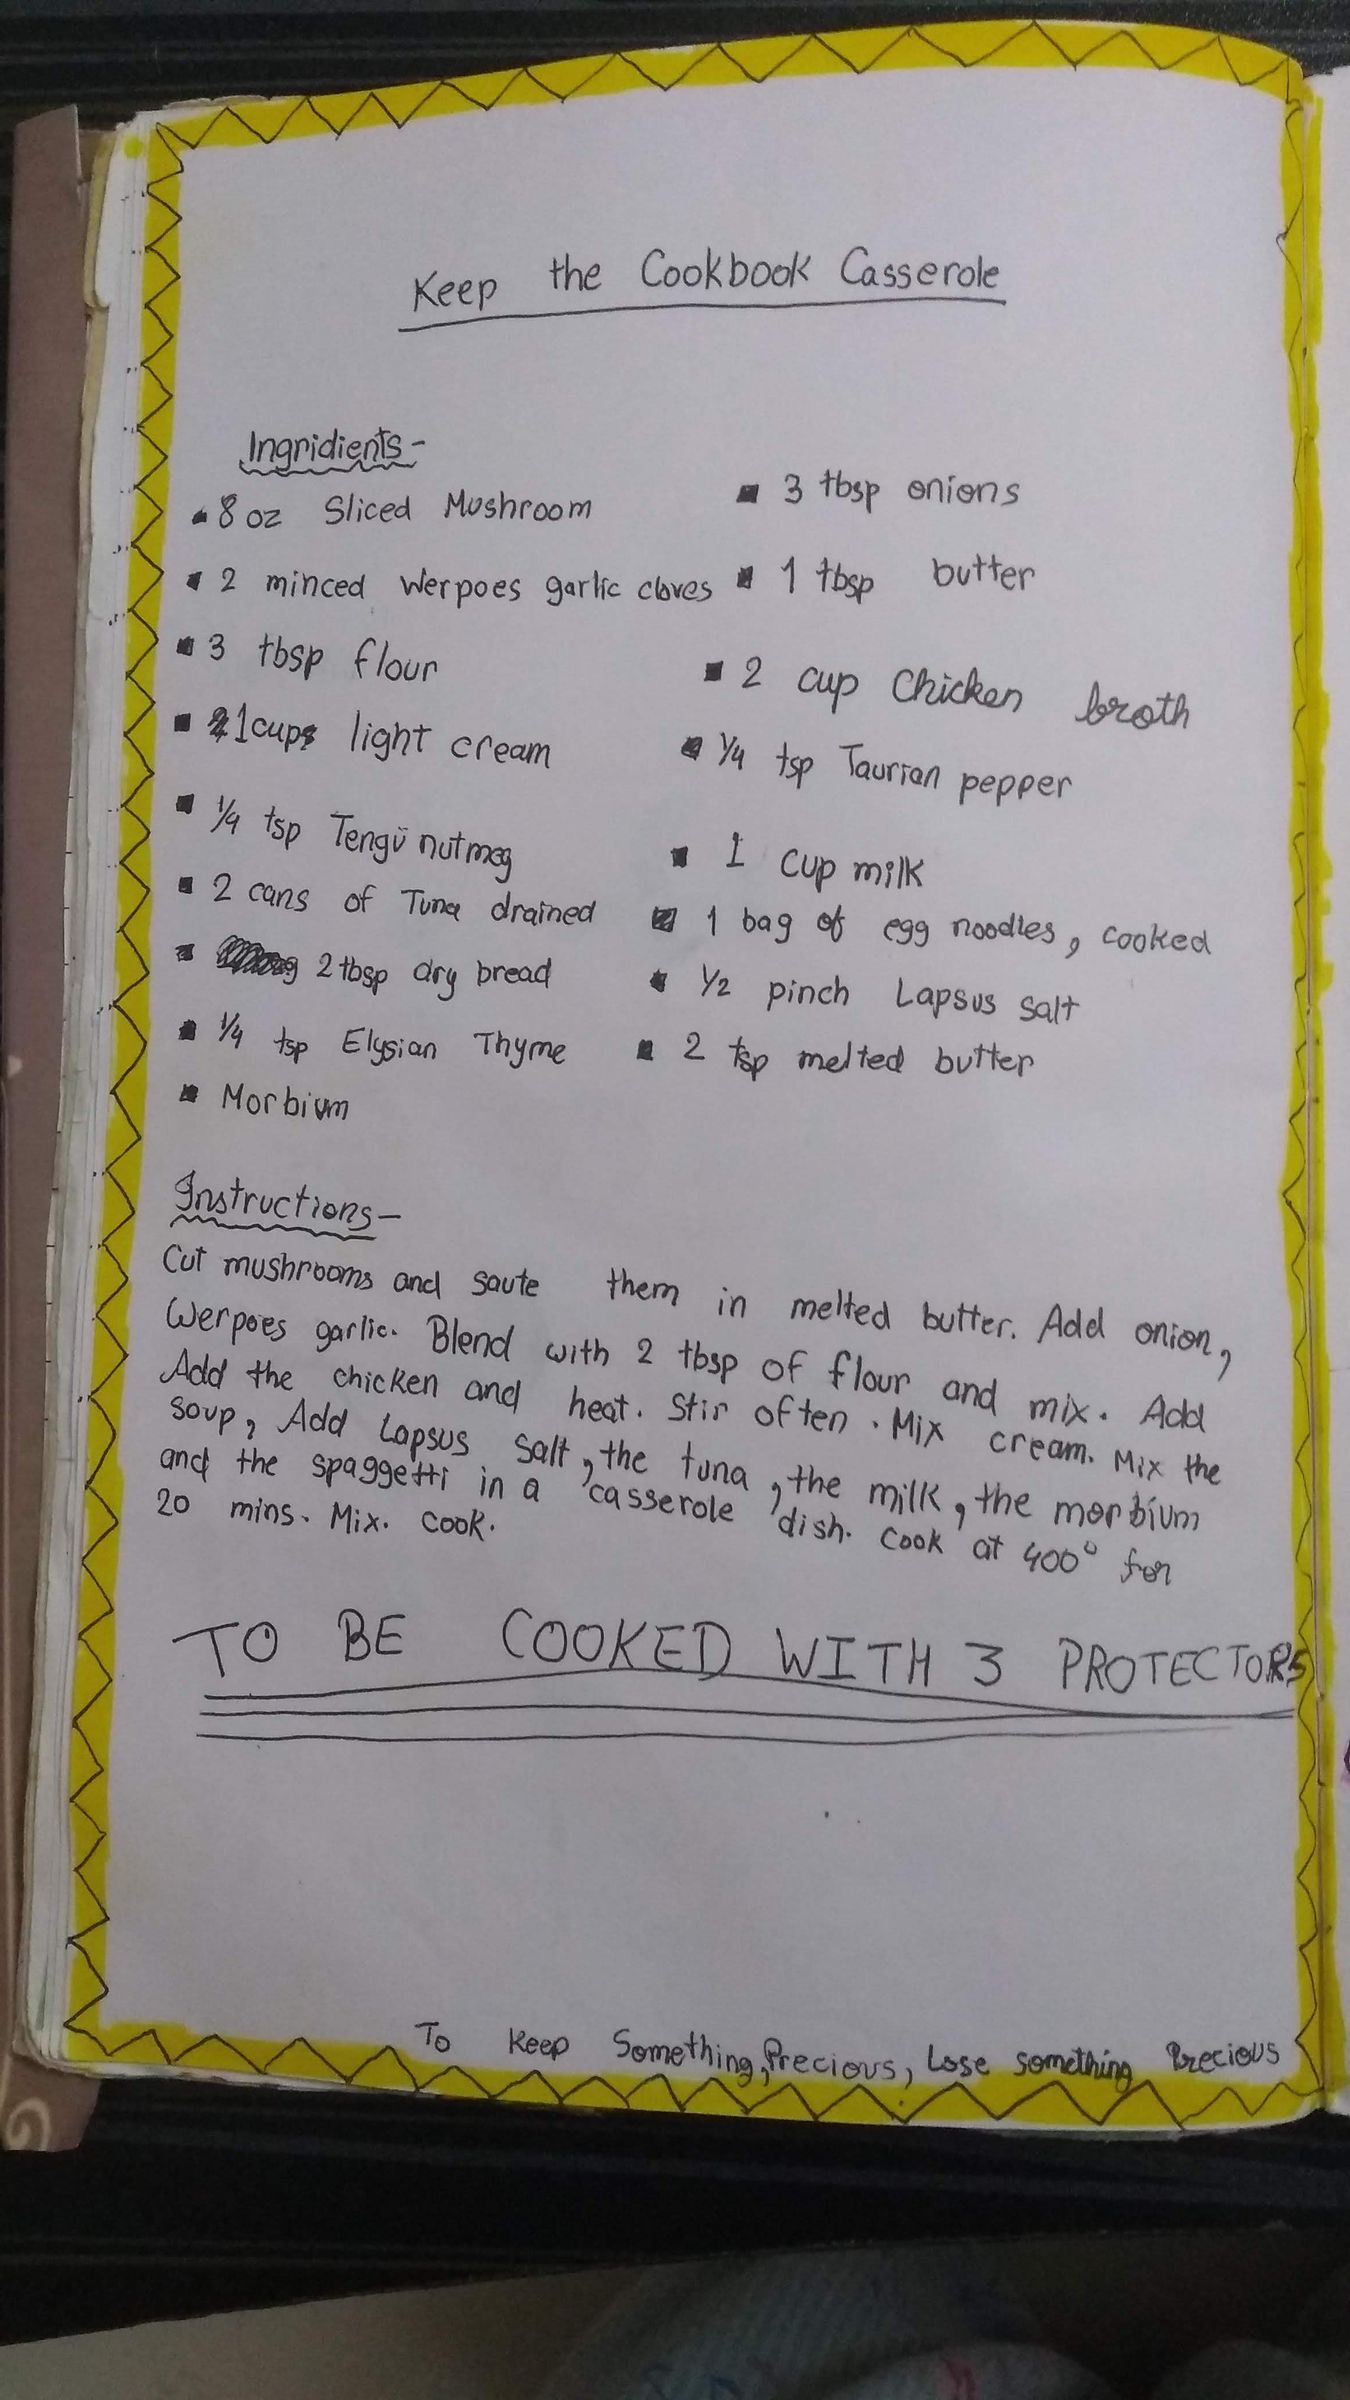 Keep the Cookbook Casserole
Ingridients -
8 oz Sliced Mushroom
2 minced Werpoes garlic cloves
3 tbsp flour
1 cup light cream
1/4 tsp Tengu nutmeg
2 cans of Tuna drained
2 tbsp dry bread
1/4 tsp Elysian Thyme
Morbium
3 tbsp onions
1 tbsp butter
2 cup Chicken broth
1/4 tsp Taurian pepper
1 cup milk
1 bag of egg noodles, cooked
1/2 pinch Lapsus salt
2 tsp melted butter
Instructions -
Cut mushrooms and saute them in melted butter. Add onion,
Werpoes garlic. Blend with 2 tbsp of flour and mix. Add
Add the chicken and heat. Stir often. Mix cream. Mix the
soup, Add Lapsus salt, the tuna, the milk, the morbium
and the spaggetti in a casserole dish. Cook at 400° for
20 mins. Mix. Cook.
TO BE COOKED WITH 3 PROTECTORS
To Keep Something, Precious, Lose something Precious